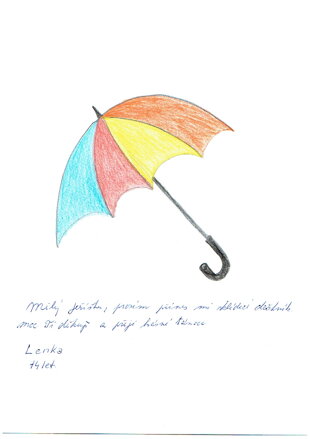 Milý Ježíšku, prosím přines mi skládací deštník
moc Ti děkuji a přeji hezké Vánoce
Lenka
74 let